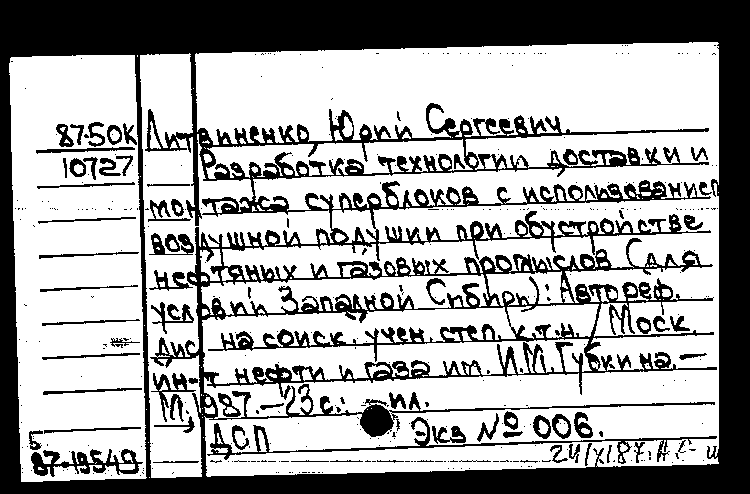 87-50К Литвиненко Юрий Сергеевич.
10727 Разработка технологии доставки и
монтажа суперблоков с использованием
воздушной подушки при обустройстве
нефтяных и газовых промыслов (для
условий Западной Сибири): Автореф.
дис. на соиск. учен. степ. к.т.н. Моск.
ин-т нефти и газа им. И.М. Губкина.—
М., 1987.—23 с.: ил.
ДСП Экз № 006.
87-19549